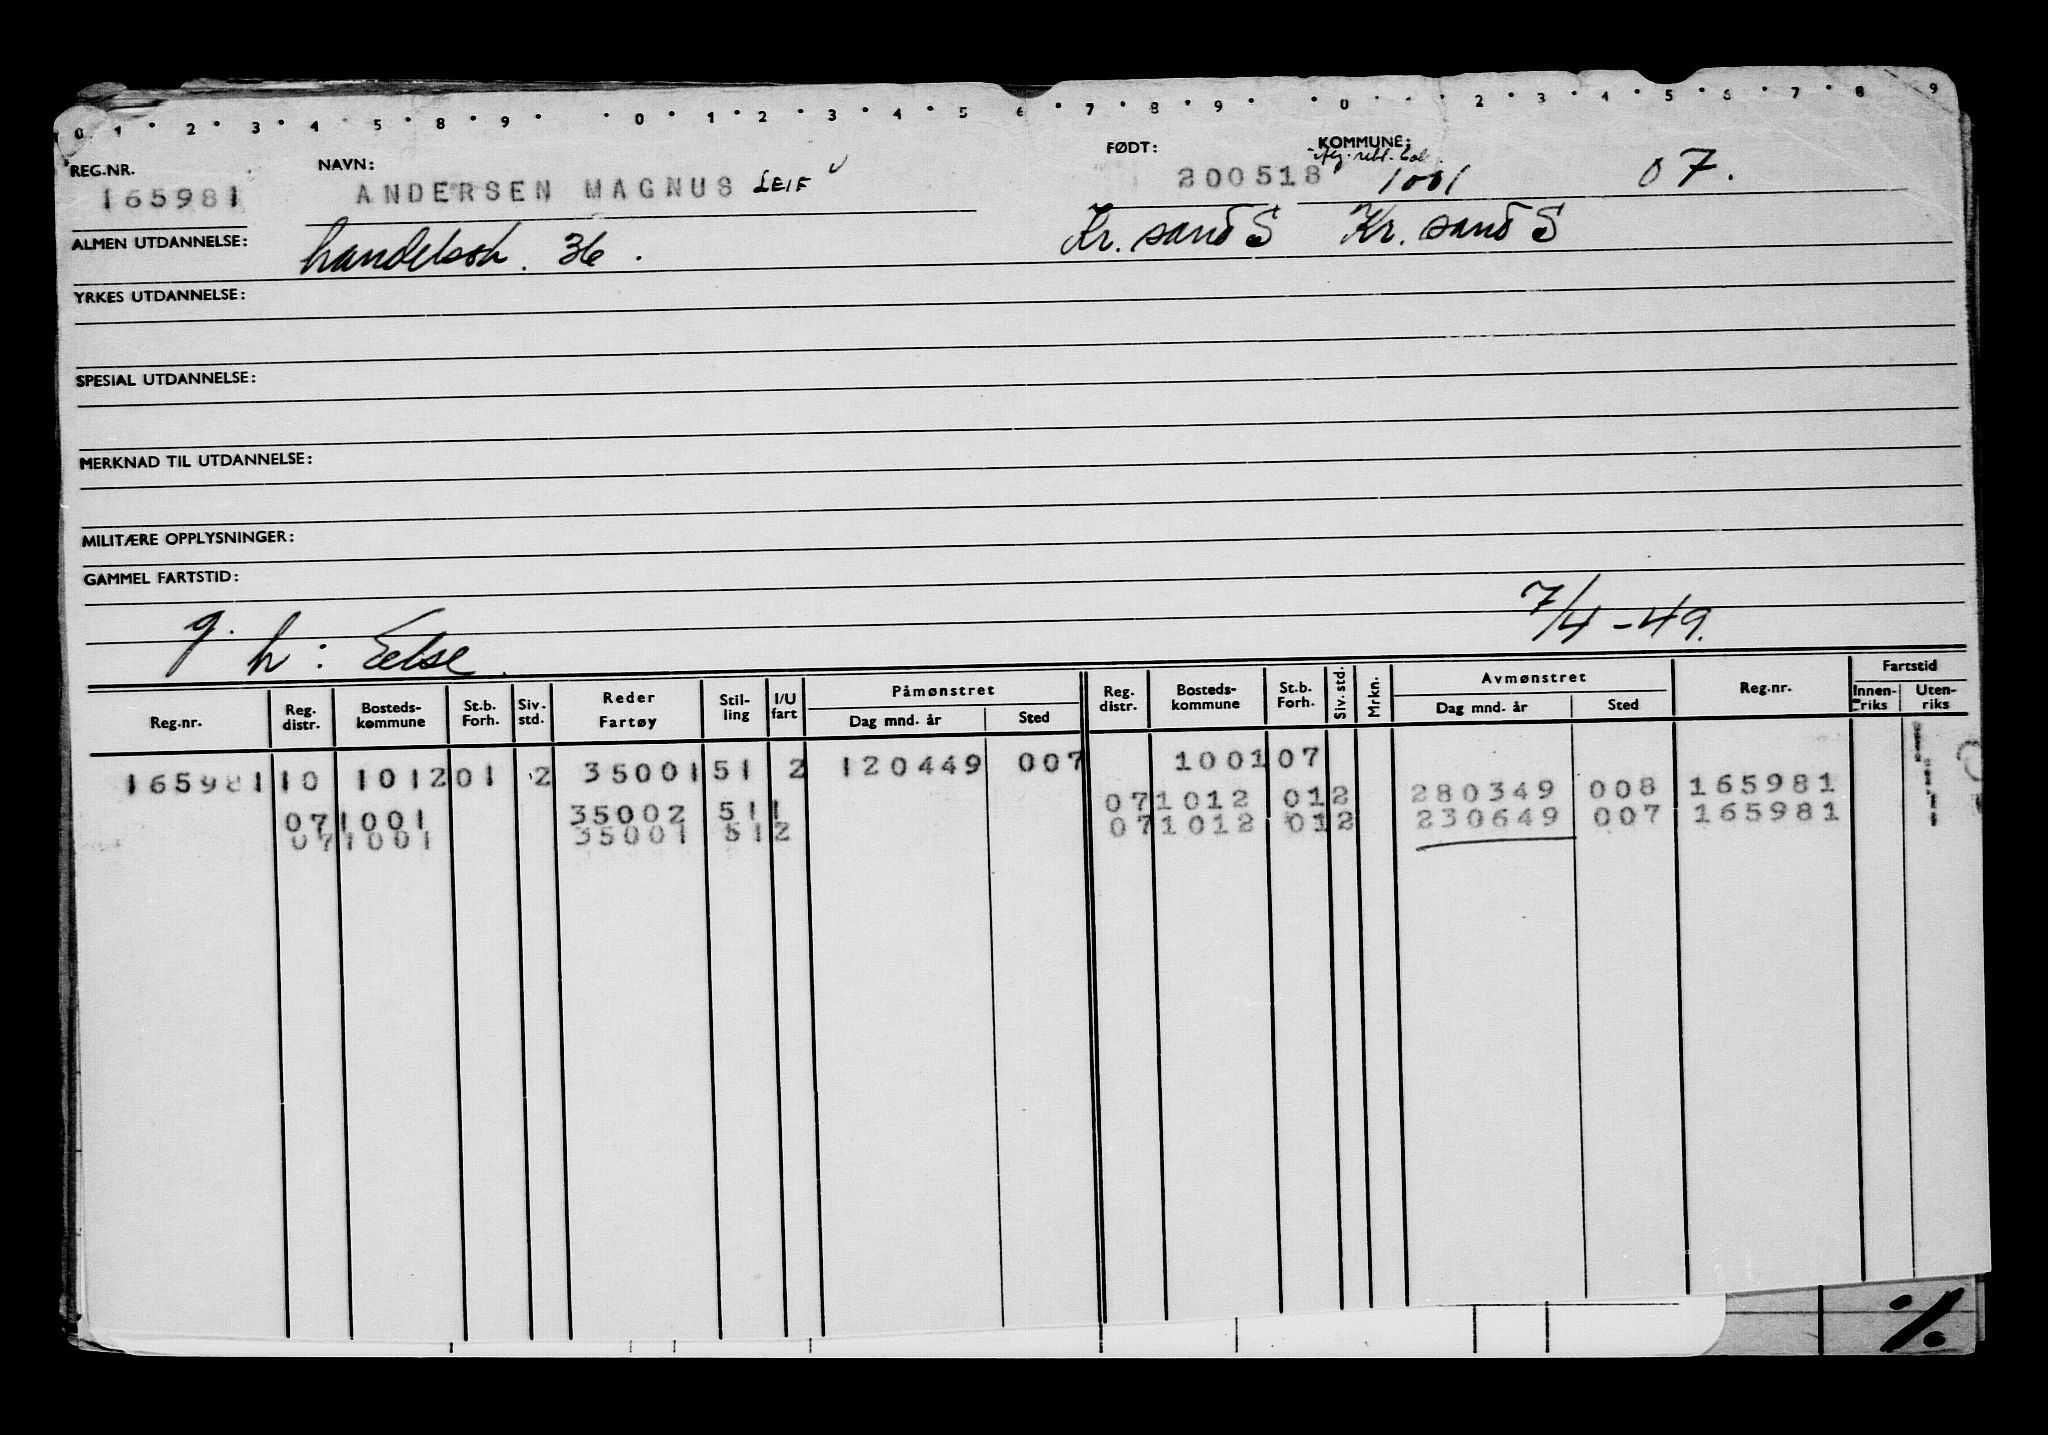 0 1 2 3 4 5 8 9 0 1 2 3 4 5 6 7 8 9 0 2 3 4 5 6 7 8 9
REG.NR. NAVN: FØDT: KOMMUNE:
165981 ANDERSEN MAGNUS LEIF 200518 1001 07.
ALMEN UTDANNELSE: handelssk. 36. Kr. sand S Kr. sand S
YRKES UTDANNELSE:
SPESIAL UTDANNELSE:
MERKNAD TIL UTDANNELSE:
MILITÆRE OPPLYSNINGER:
GAMMEL FARTSTID:
g. 7/4-49.
h: Eelse.
Reg.nr. Reg. distr. Bosteds-kommune St.b. Forh. Siv. std. Reder Fartøy Stil-ling I/U fart Påmønstret Dag mnd. år Sted Reg. distr. Bosteds-kommune St.b. Forh. Siv. std. Mrkn. Avmønstret Dag mnd. år Sted Reg.nr. Fartstid Innen-riks Uten-riks
165981 10 1012 01 2 35001 51 2 120449 007 1001 07
07 1012 01 2 280349 008 165981
07 1001 35002 51 1 07 1012 01 2 230649 007 165981
07 1001 35001 51 2
%